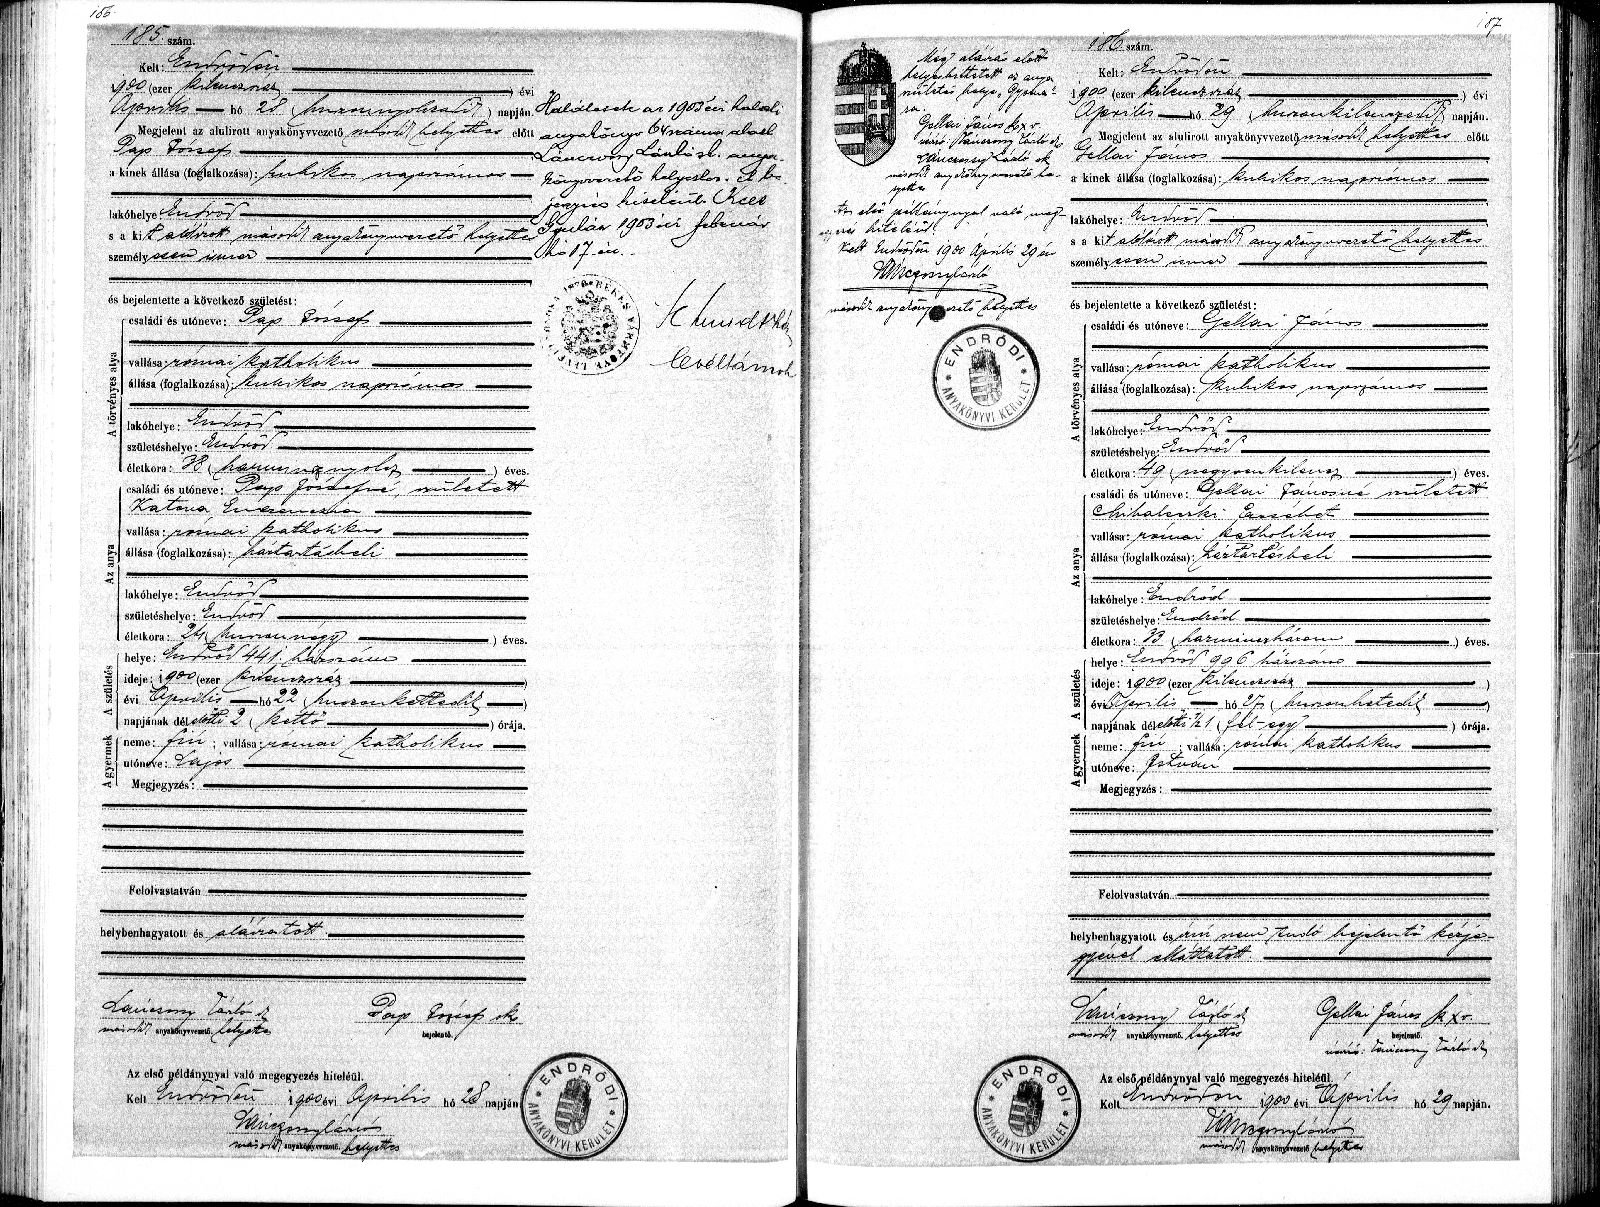 156.
185. szám.
Kelt: Endrődön
1900 (ezer kilenczszáz) évi
Április hó 28 (huszonnyolczadik) napján.
Megjelent az alulirott anyakönyvvezető második helyettes előtt
Pap József
a kinek állása (foglalkozása): kubikos napszámos
lakóhelye Endrőd
s a kit alólirott második anyakönyvvezető helyettes
személyesen ismer
és bejelentette a következő születést:
A törvényes atya
családi és utóneve: Pap József
vallása: római katholikus
állása (foglalkozása): kubikos napszámos
lakóhelye: Endrőd
születéshelye: Endrőd
életkora: 38 (harmincznyolcz) éves.
Az anya
családi és utóneve: Pap Józsefné, született
Katona
vallása: római katholikus
állása (foglalkozása): háztartásbeli
lakóhelye: Endrőd
születéshelye: Endrőd
életkora: 24 (huszonnégy) éves.
A születés
helye: Endrőd 441 házszám
ideje: 1900 (ezer kilenczszáz)
évi Április hó 22 (huszonkettedik)
napjának délelőtti 2 (kettő) órája.
A gyermek
neme: fiú; vallása: római katholikus
utóneve: Lajos
Megjegyzés:
Felolvastatván
helybenhagyatott és aláiratott.
második anyakönyvvezető. helyettes
Pap József sk
bejelentő.
Az első példánynyal való megegyezés hiteléül.
Kelt Endrődön 1900 évi Április hó 28 napján
második anyakönyvvezető. helyettes
ENDRŐDI
ANYAKÖNYVI KERÜLET
az 1903 évi halálozási
anyakönyv 64 szám alatt
László
anyakönyvvezető helyettes.
Gyulán 1903 évi február
hó 17-én.
BÉKÉS VÁRMEGYE
187
Még aláirás előtt
helyesbittetett az anya
születési helye
Gellai János kxv.
második anyakönyvvezető helyettes
Az első példánynyal való megegyezés hiteléül
Kelt Endrődön 1900 Április 29 én
második anyakönyvvezető helyettes
ENDRŐDI
ANYAKÖNYVI KERÜLET
186 szám.
Kelt: Endrődön
1900 (ezer kilenczszáz) évi
Április hó 29 (huszonkilenczedik) napján.
Megjelent az alulirott anyakönyvvezető második helyettes előtt
Gellai János
a kinek állása (foglalkozása): kubikos napszámos
lakóhelye: Endrőd
s a kit alólirott második anyakönyvvezető helyettes
személyesen ismer
és bejelentette a következő születést:
A törvényes atya
családi és utóneve: Gellai János
vallása: római katholikus
állása (foglalkozása): kubikos napszámos
lakóhelye: Endrőd
születéshelye: Endrőd
életkora: 49 (negyvenkilencz) éves.
Az anya
családi és utóneve: Gellai Jánosné született
Erzsébet
vallása: római katholikus
állása (foglalkozása): háztartásbeli
lakóhelye: Endrőd
születéshelye: Endrőd
életkora: 33 (harminczhárom) éves.
A születés
helye: Endrőd 996 házszám
ideje: 1900 (ezer kilenczszáz)
évi Április hó 27 (huszonhetedik)
napjának délelőtti ½ 1 (fél-egy) órája.
A gyermek
neme: fiú; vallása: római katholikus
utóneve: István
Megjegyzés:
Felolvastatván
helybenhagyatott és irni nem tudó bejelentő kézje-
gyével elláttatott.
második anyakönyvvezető. helyettes
Gellai János kxv.
bejelentő.
Az első példánynyal való megegyezés hiteléül.
Kelt Endrődön 1900 évi Április hó 29 napján.
második anyakönyvvezető helyettes
ENDRŐDI
ANYAKÖNYVI KERÜLET